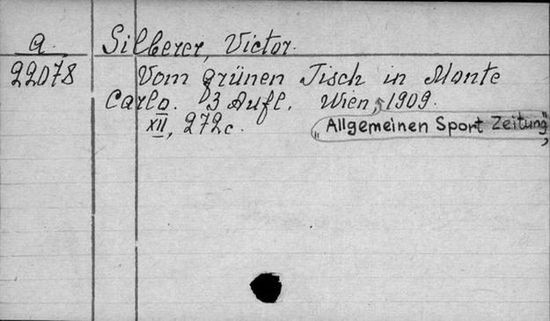 a. Silberer, Victor.
22078 Vom grünen Tisch in Monte
Carlo. 3 Aufl. Wien, 1909.
XII, 272c. „Allgemeinen Sport Zeitung",